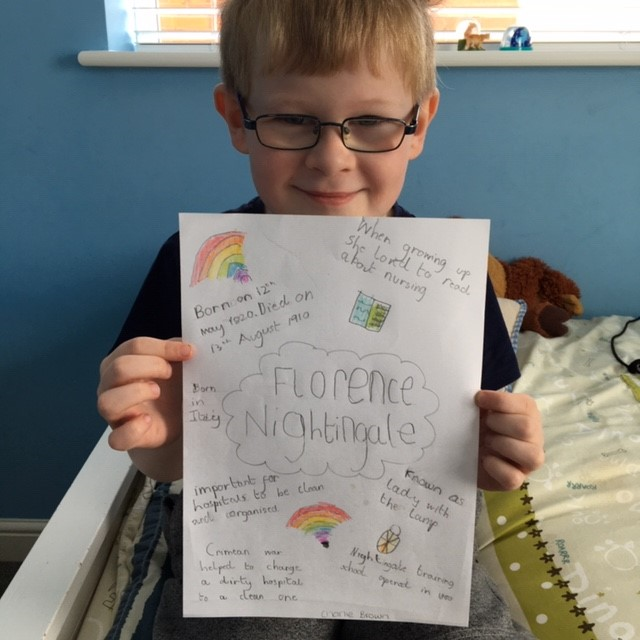 When growing up
she loved to read
about nursing
Born on 12th
May 1820. Died on
13th August 1910
Born
in
Italy
Florence
Nightingale
important for
hospitals to be clean
and organised
Known as
lady with
the lamp
Crimean war
helped to change
a dirty hospital
to a clean one
Nightingale training
school opened in
Brown